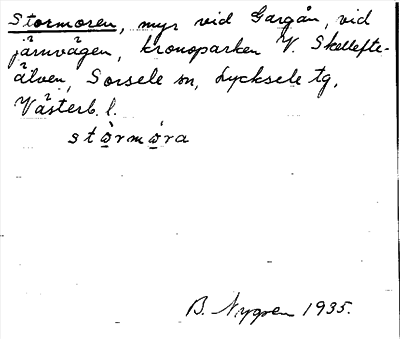 Stormoren, myr vid Gargån, vid
järnvägen, kronoparken V. Skellefte-
älven, Sorsele sn, Lycksele tg,
Västerb. l.
stòrmóra
B. Nygren 1935.